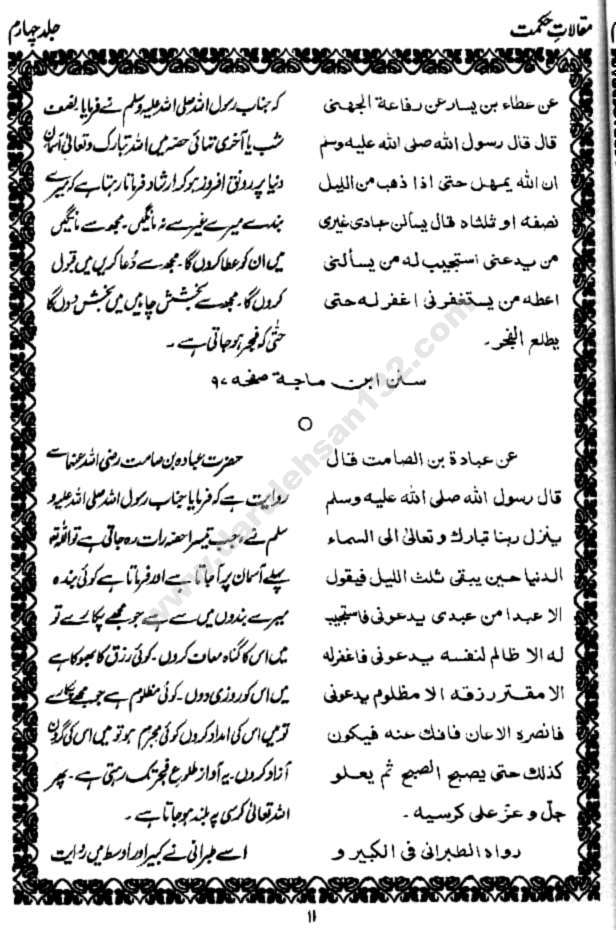 مقالات حکمت
جلد چہارم
عن عطاء بن يسار عن رفاعة الجهني
قال قال رسول الله صلى الله عليه وسم
ان الله يمهل حتى اذا ذهب من الليل
نصفه او ثلثاه قال يسألن عبادى غيرى
من يدعنى استجيب له من يسألنى
اعطه من يستغفرنى اغفر له حتى
يطلع الفجر۔
کہ جناب رسول اللہ صلی اللہ علیہ وسلم نے فرمایا نصف
شب یا آخری تہائی حصہ میں اللہ تبارک وتعالیٰ آسمان
دنیا پر رونق افروز ہوکر ارشاد فرماتا رہتا ہے کہ میرے
بندے میرے غیر سے نہ مانگیں۔ مجھ سے مانگیں
میں ان کو عطا کروں گا۔ مجھ سے دُعا کریں میں قبول
کروں گا۔ مجھ سے بخشش چاہیں میں بخش دوں گا
حتٰی کہ فجر ہو جاتی ہے۔
سنن ابن ماجة صفحه ۹۷
عن عبادة بن الصامت قال
قال رسول الله صلى الله عليه وسلم
ينزل ربنا تبارك و تعالىٰ الى السماء
الدنيا حين يبقى ثلث الليل فيقول
الا عبدا من عبدى يدعونى فاستجيب
له الا ظالم لنفسه يدعونى فاغفرله
الا مقتر رزقه الا مظلوم يدعونى
فانصره الا عان فافك عنه فيكون
كذلك حتى يصبح الصبح ثم يعلو
جلّ و عزّ على كرسيه۔
رواه الطبرانى فى الكبير و
حضرت عبادہ بن صامت رضی اللہ عنہا سے
روایت ہے کہ فرمایا جناب رسول اللہ صلی اللہ علیہ و
سلم نے، جب تیسرا حصہ رات رہ جاتی ہے تو اللہ تعالیٰ
پہلے آسمان پر آ جاتا ہے اور فرماتا ہے کوئی بندہ
میرے بندوں میں سے ہے جو مجھے پکارے تو
میں اس کا گناہ معاف کروں۔ کوئی رزق کا بھوکا ہے
میں اس کو روزی دوں۔ کوئی مظلوم ہے جو مجھے پکارے
تو میں اس کی امداد کروں کوئی مجرم ہو تو میں اس کی گردن
آزاد کروں۔ یہ آواز طلوع فجر تک رہتی ہے۔ پھر
اللہ تعالیٰ کرسی پہ بلند ہو جاتا ہے۔
اسے طبرانی نے کبیر اور اوسط میں روایت
۱۱
www.dar-ul-ehsan132.com